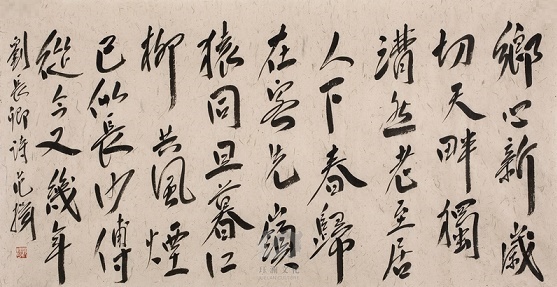 鄉心新歲
切天畔獨
潸然老至居
人下春歸
在客先嶺
猿同旦暮江
柳共風煙
已似長沙傅
從今又幾年
劉長卿詩 范